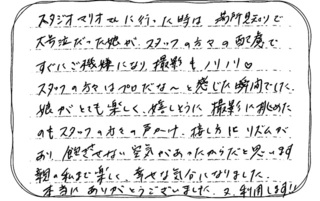 スタジオマリオさんに行った時は 場所見知りで
大号泣だった娘が、スタッフの方々の配慮で
すぐにご機嫌になり、撮影もノリノリ♡
スタッフの方々はプロだな〜と感じた瞬間でした。
娘がとても楽しく、嬉しそうに 撮影に挑めた
のもスタッフの方々の声かけ、接し方に リズムが
あり 飽きさせない空気があったからだと思います
親の私まで楽しく、幸せな気分になりました。
本当に ありがとうございました。又、利用します!!